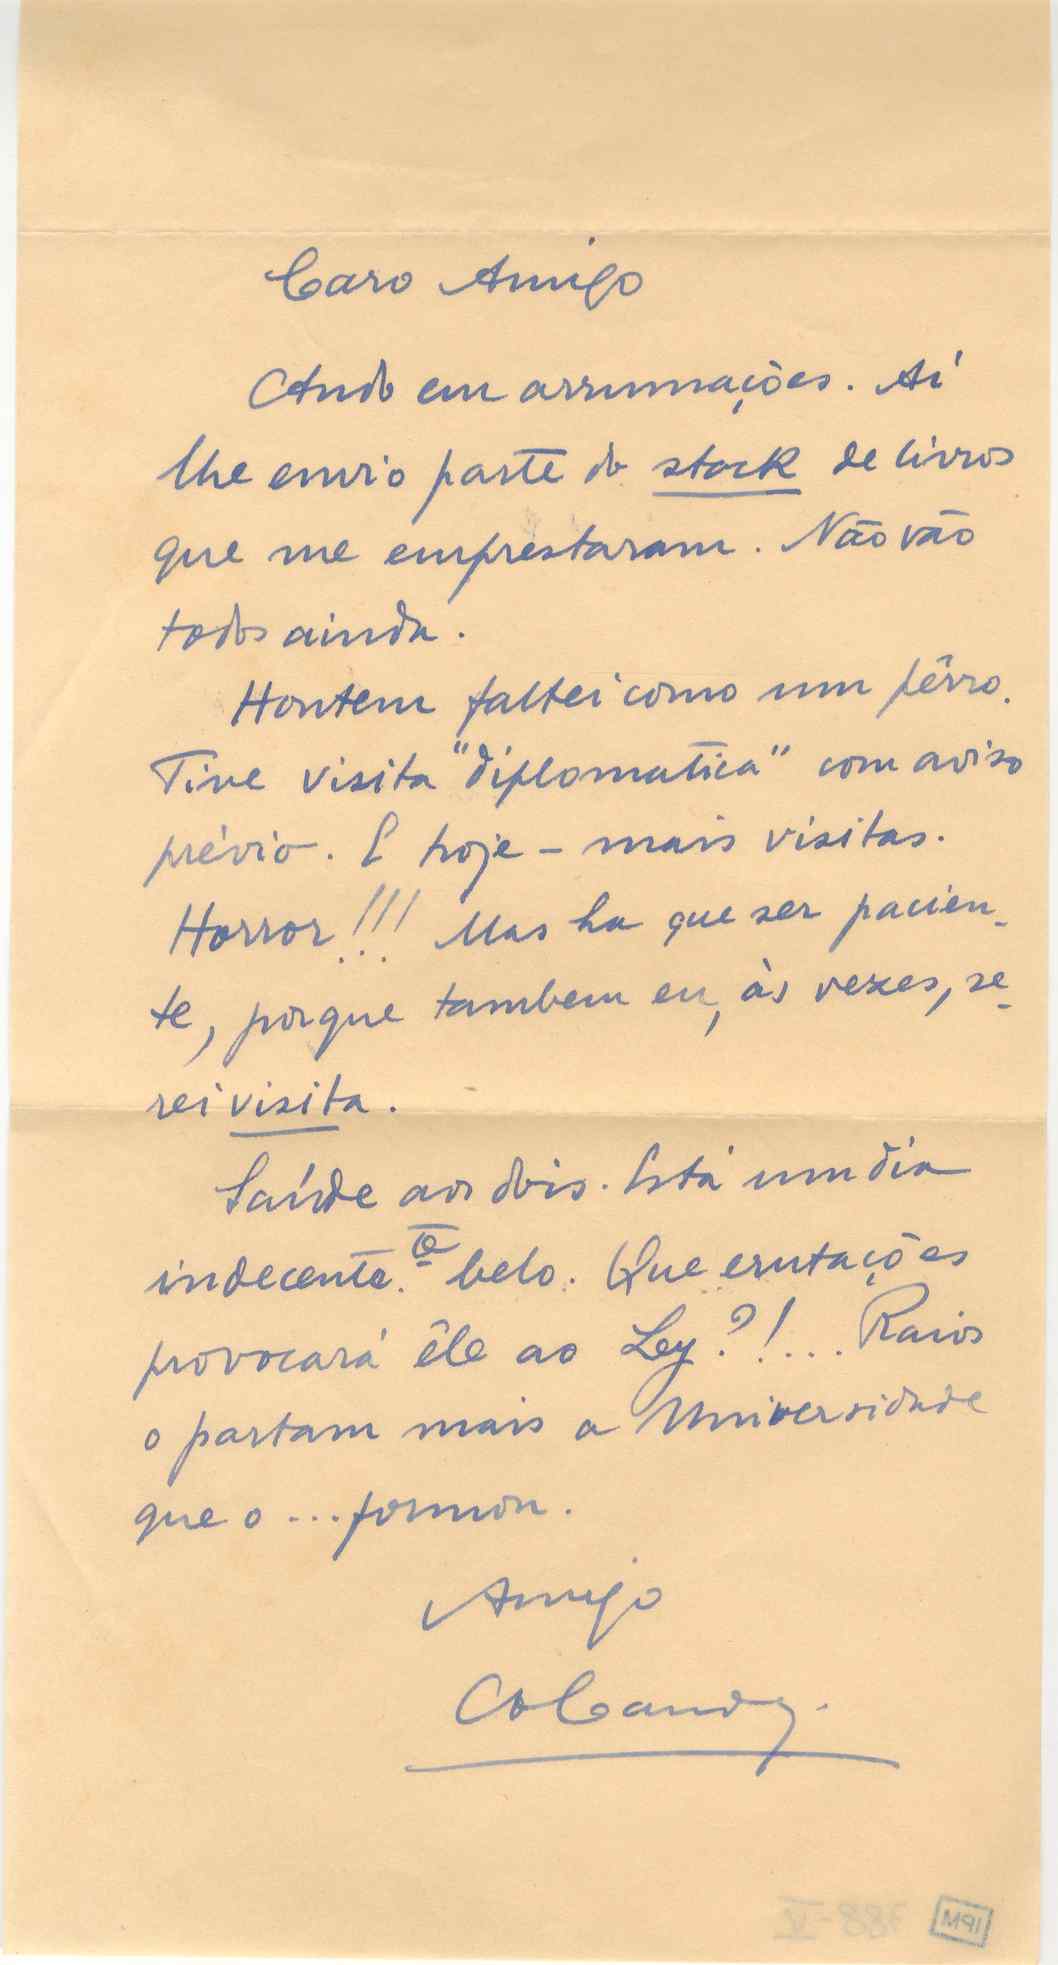 Caro Amigo
Ando em arrumações. Aí
lhe envio parte do stock de livros
que me emprestaram. Não vão
todos ainda.
Hontem faltei como um pêrro.
Tive visita "diplomatica" com aviso
prévio. E hoje – mais visitas.
Horror!!! Mas ha que ser pacien-
te, porque tambem eu, às vezes, se-
rei visita.
Saúde aos dois. Está um dia
indecente. belo. Que erutações
provocará êle ao Ley?!... Raios
o partam mais a Universidade
que o ... formou.
Amigo
IPM